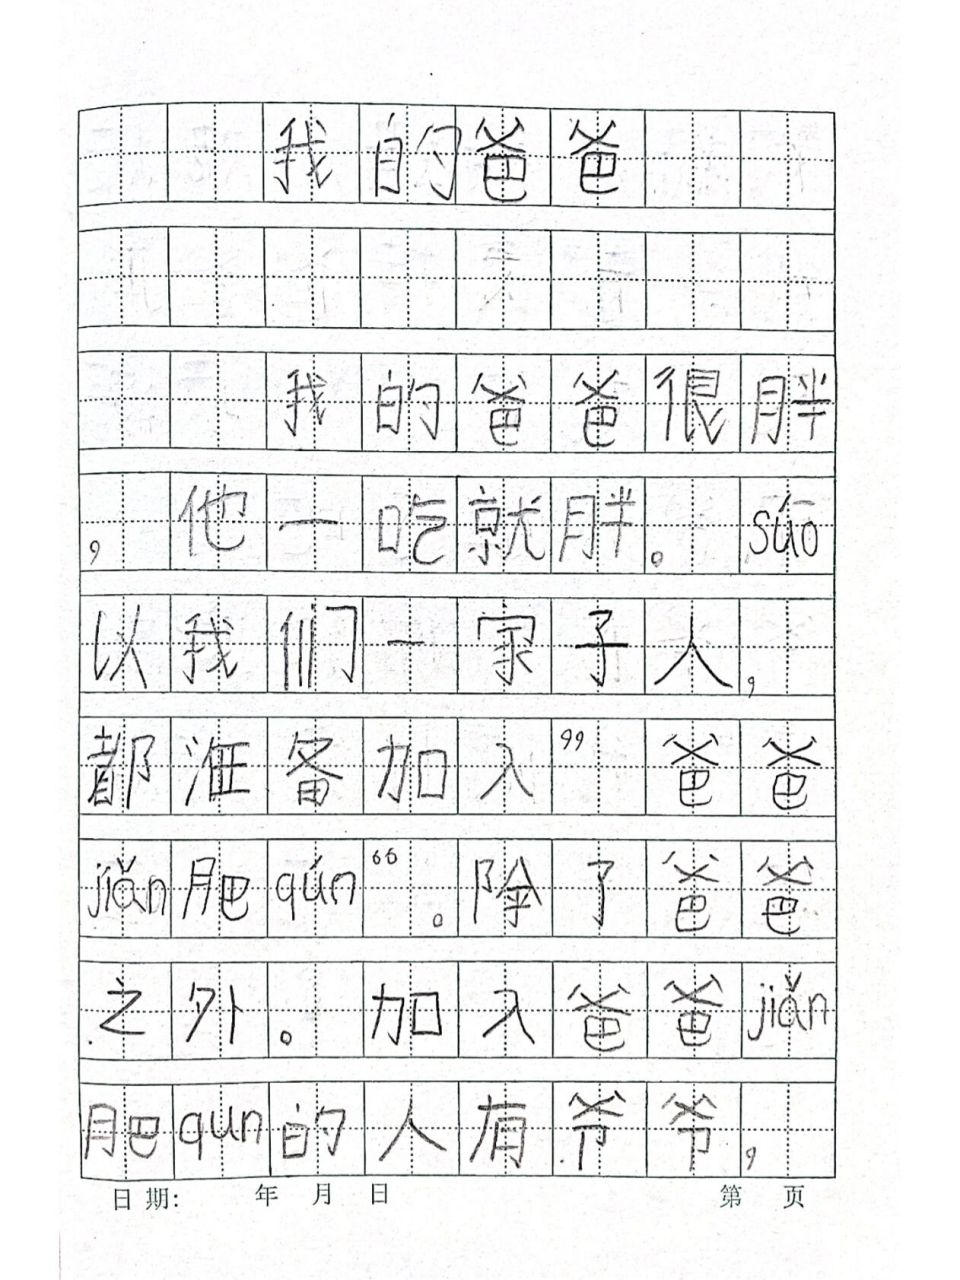 我的爸爸
我的爸爸很胖
，他一吃就胖。súo
以我们一家子人，
都准备加入”爸爸
jiǎn肥qún“。除了爸爸
之外。加入爸爸jiǎn
肥qun的人有爷爷，
日期: 年 月 日 第 页